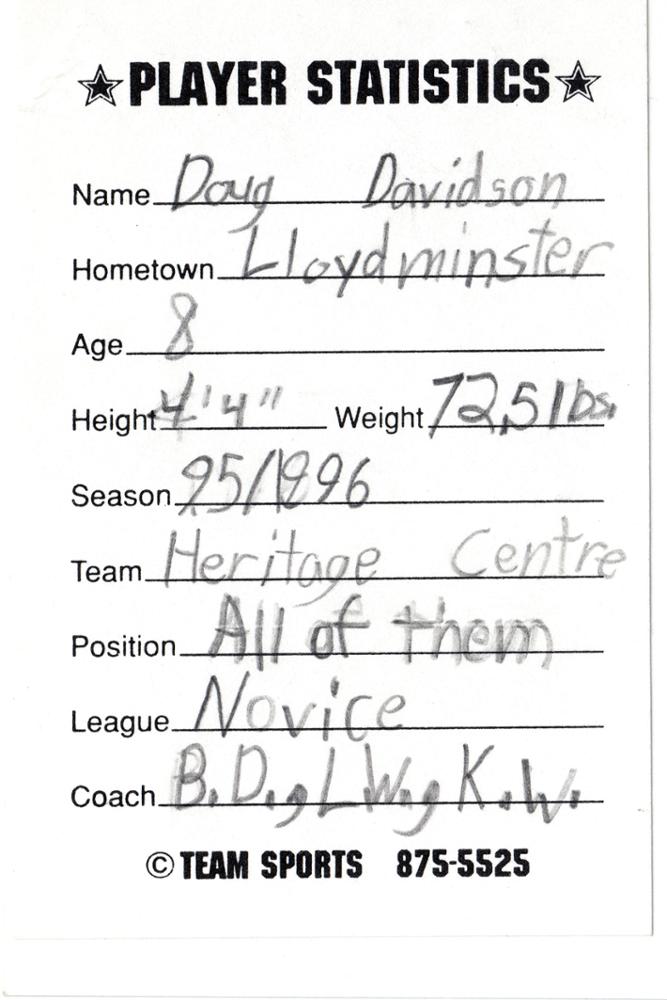 ☆PLAYER STATISTICS☆
Name Doug Davidson
Hometown Lloydminster
Age 8
Height 4'4" Weight 72.5 lbs.
Season 95/1996
Team Heritage Centre
Position All of them
League Novice
Coach B.D., L W., K.W.
© TEAM SPORTS 875-5525